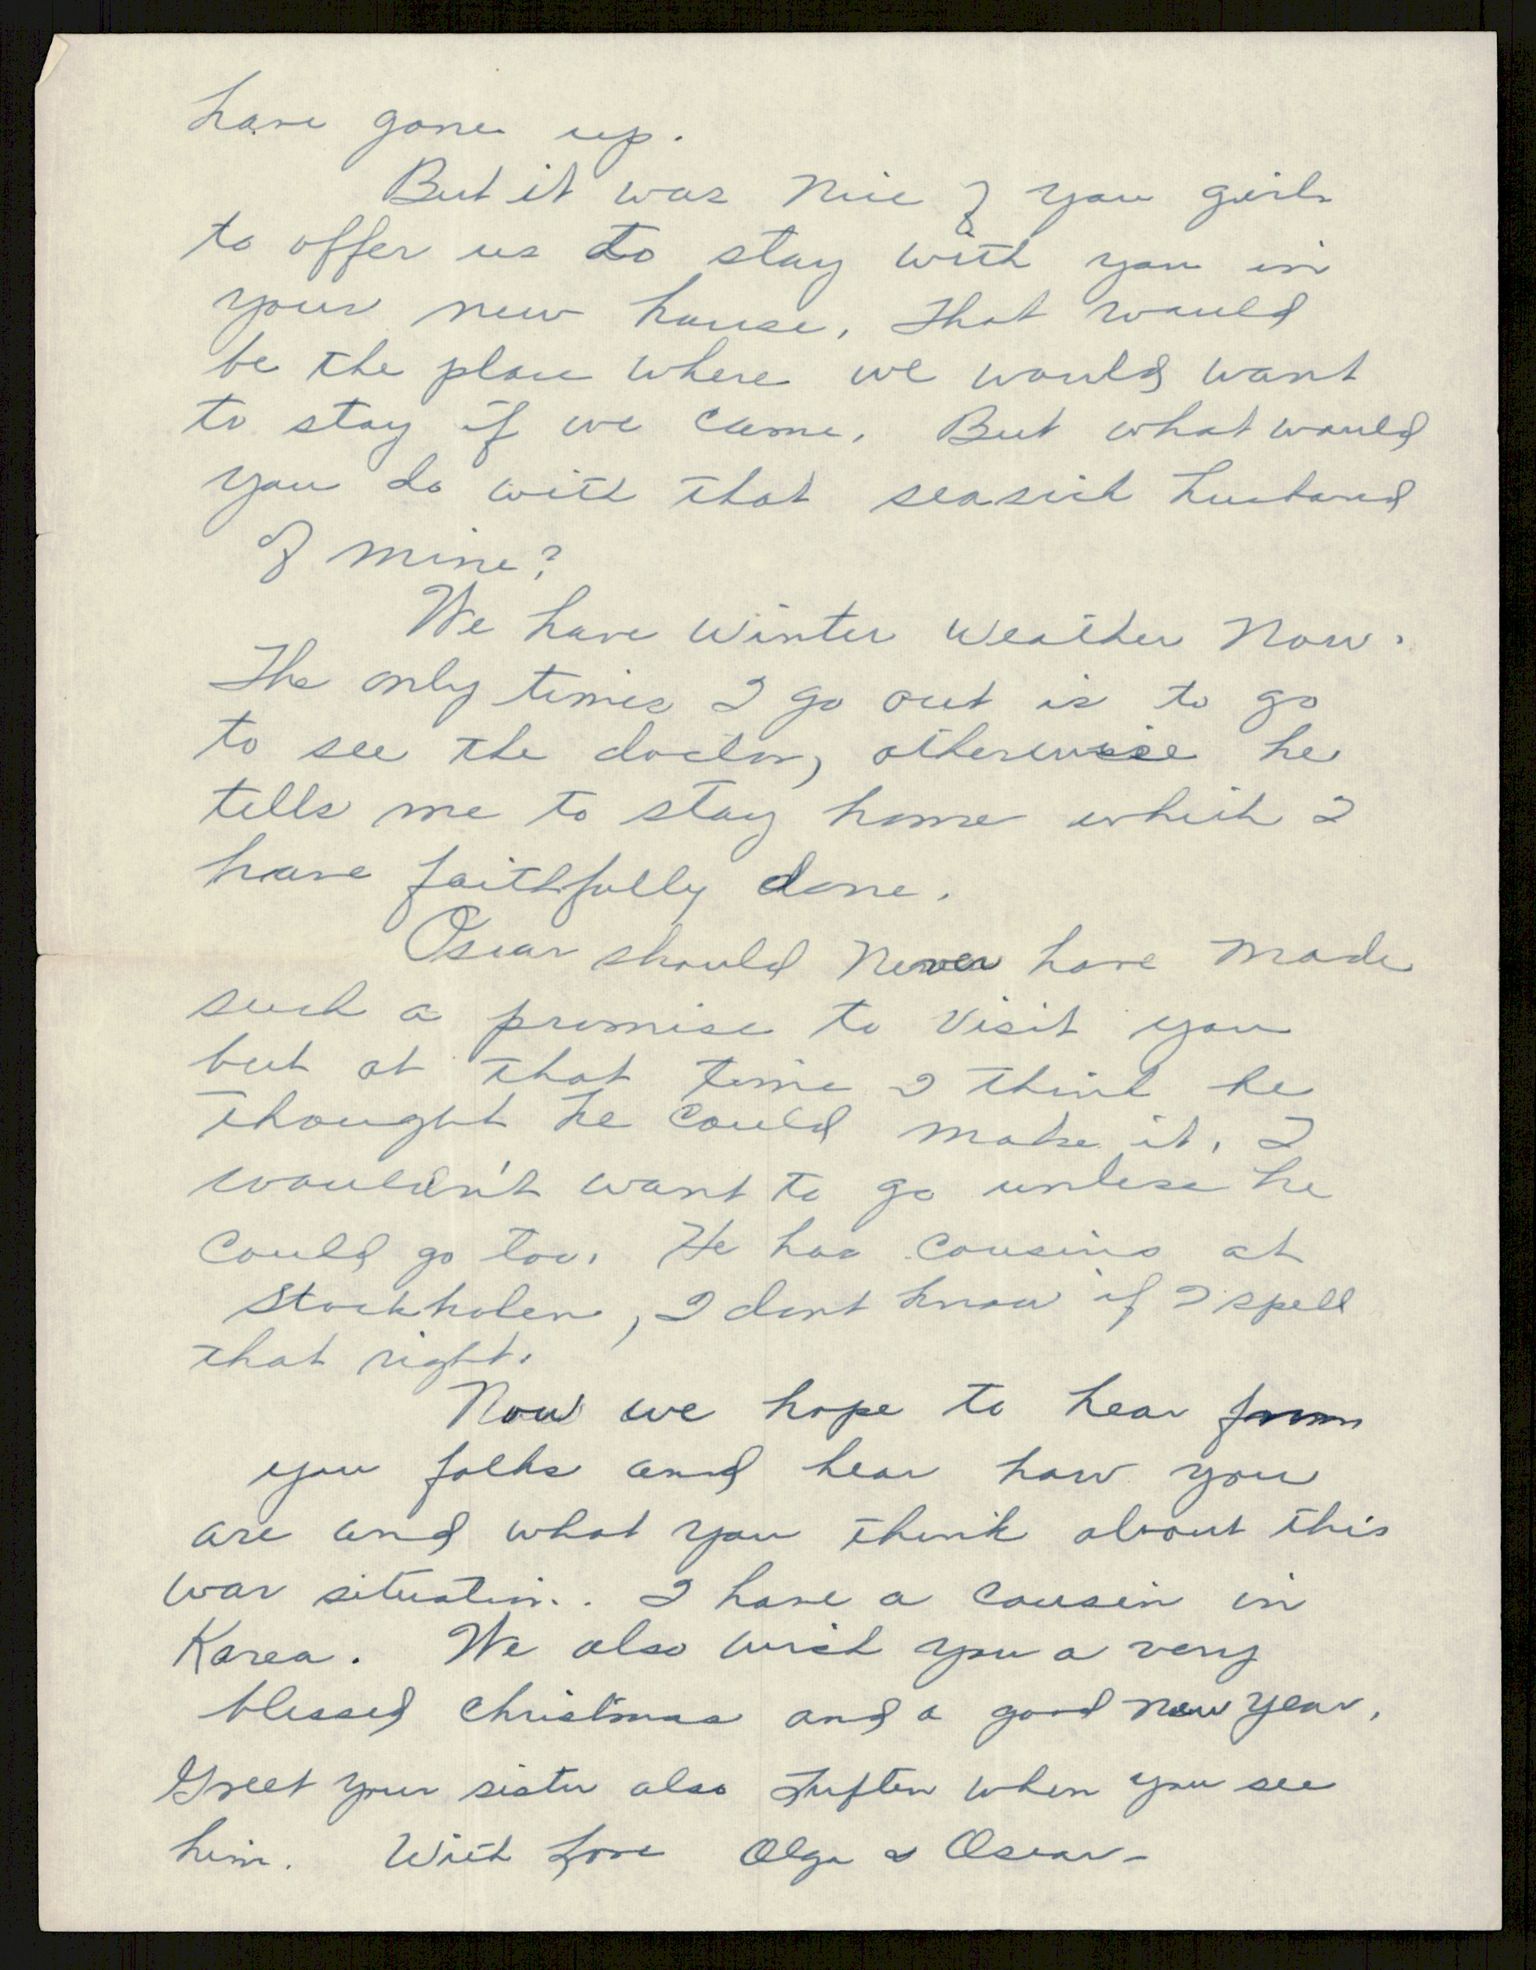 have gone up.
But it was nice of you girls
to offer us to stay with you in
your new house. That would
be the place where we would want
to stay if we came. But what would
you do with that seasick husband
of mine?
We have winter weather now.
The only times I go out is to go
to see the doctor, otherwise he
tells me to stay home which I
have faithfully done.
Oscar should never have made
such a promise to visit you
but at that time I think he
thought he could make it. I
wouldn't want to go unless he
could go too. He has cousins at
Stockholen, I dont know if I spell
that right.
Now we hope to hear from
you folks and hear how you
are and what you think about this
war situation. I have a cousin in
Korea. We also wish you a very
blessed Christmas and a good New Year.
Greet your sister also when you see
him. With Love Olga & Oscar-